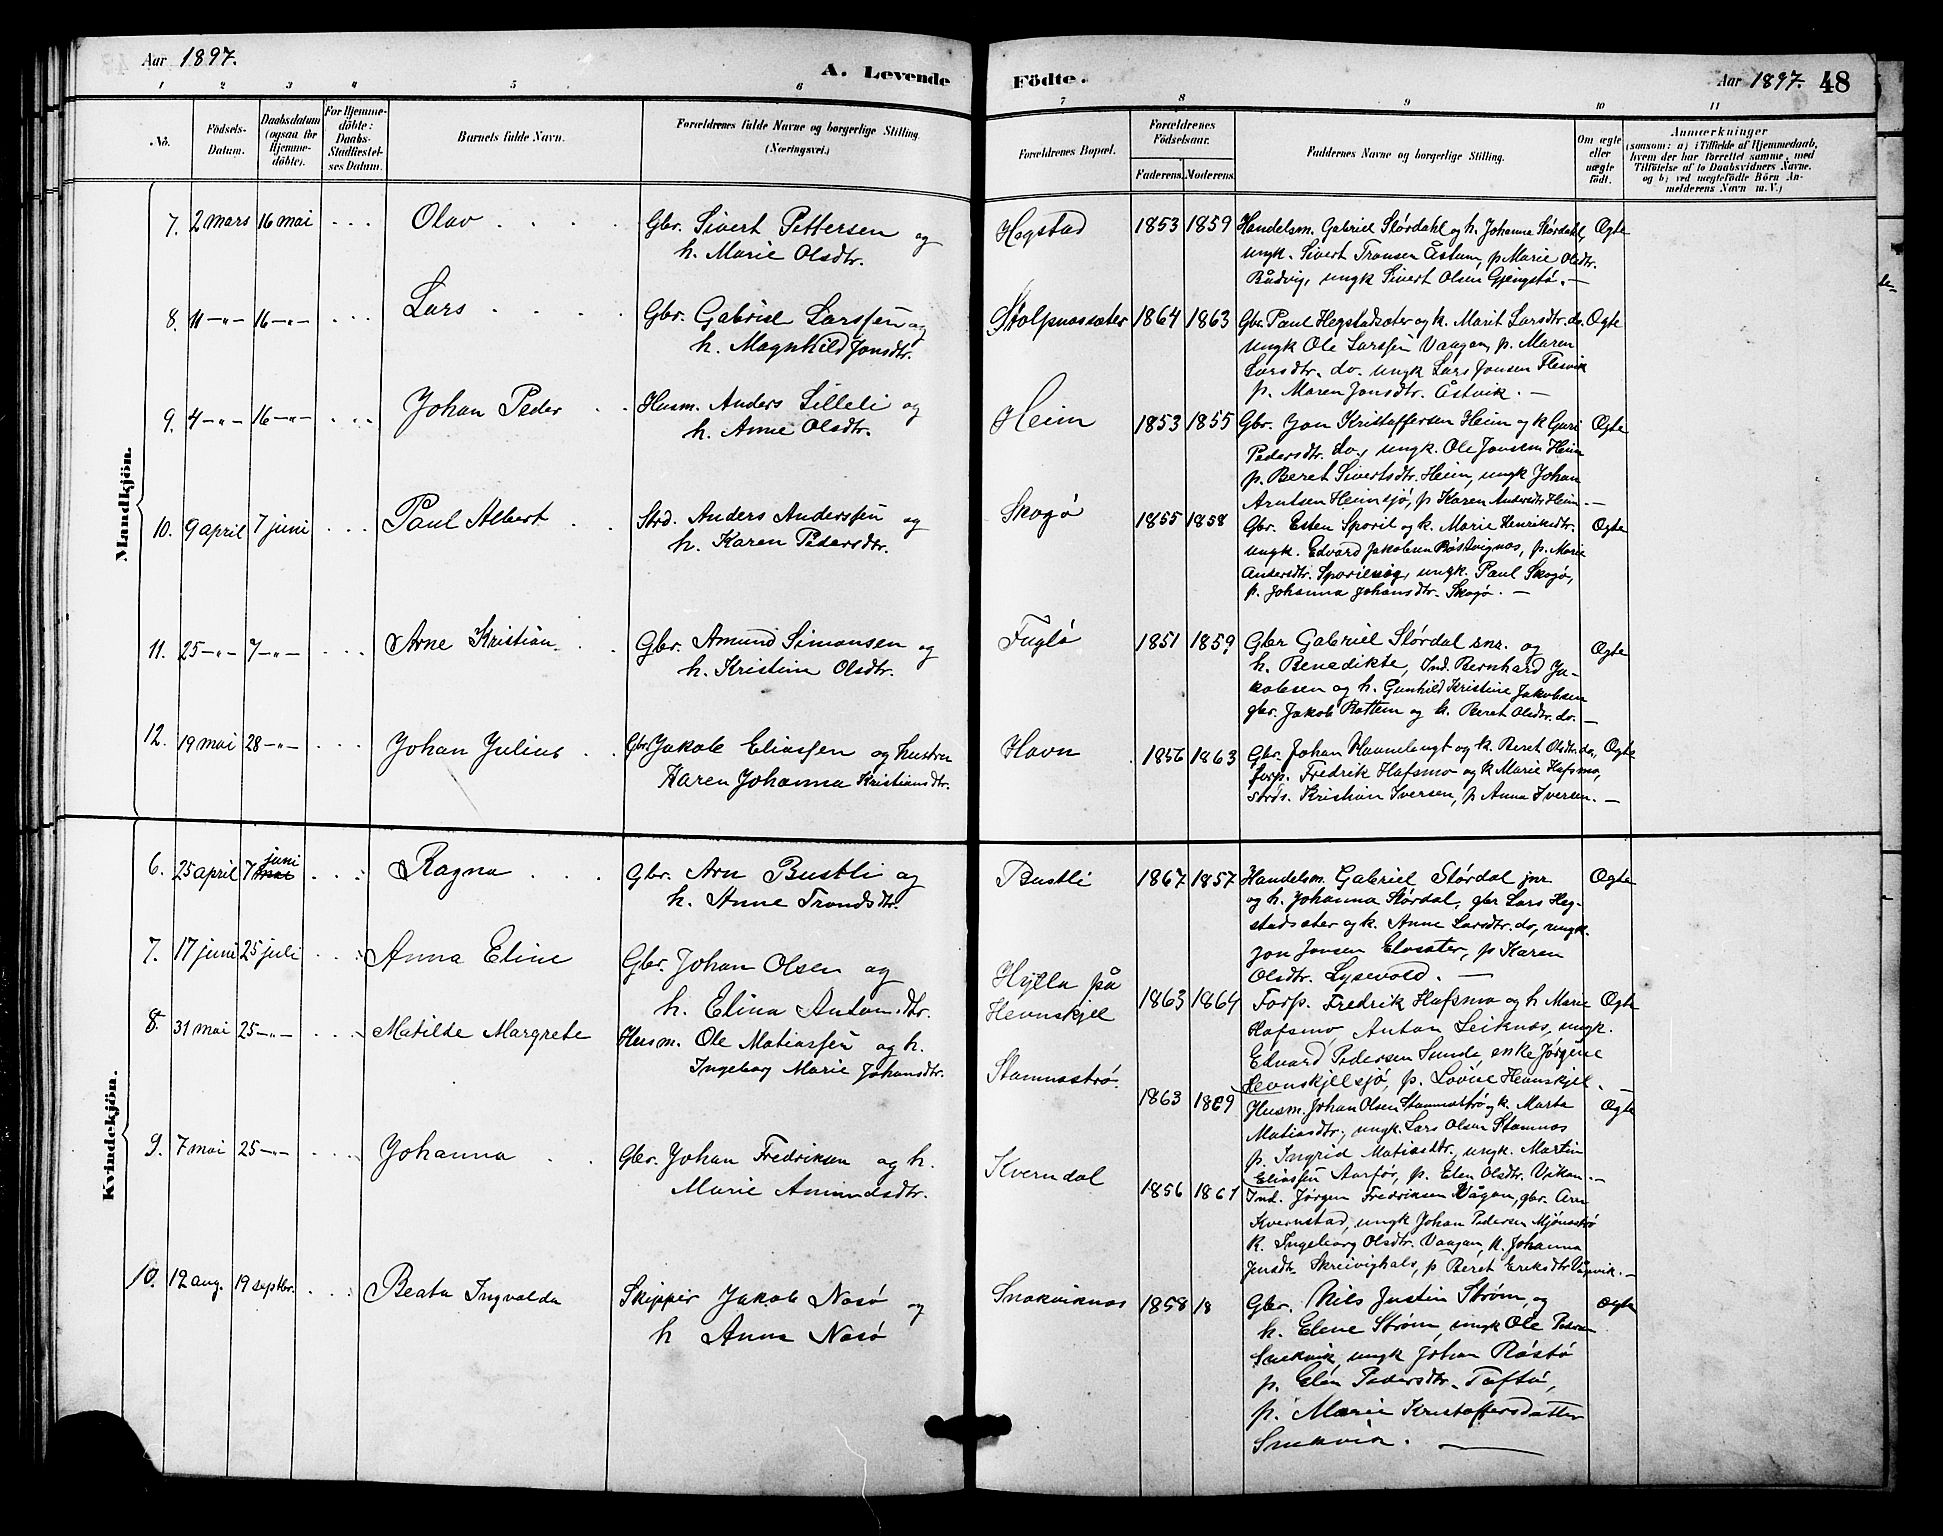 Aar 1897.
A. Levende
1 2 3 4 5 6
No.
Födsels-
Datum.
Daabsdatum
(ogsaa for
Hjemme-
döbte).
For Hjemme-
döbte:
Daabs-
Stadfæstel-
ses Datum.
Barnets fulde Navn.
Forældrenes fulde Navne og borgerlige Stilling.
(Næringsvei.)
Mandkjön.
7. 2 mars 16 mai Olav Gbr. Sivert Pettersen og
h. Marie Olsdtr.
8. 11 -"- 16 -"- Lars Gbr. Gabriel Larssen og
h. Magnhild Jonsdtr.
9. 4 -"- 16 -"- Johan Peder Husm. Anders Lilleli og
h. Anne Olsdtr.
10. 9 april 7 juni Paul Albert Strd. Anders Anderssen og
h. Karen Pedersdtr.
11. 25 -"- 7 -"- Arne Kristian Gbr. Amund Simonsen og
h. Kristine Olsdtr.
12. 19 mai 28 -"- Johan Julius Gbr. Jakob Eliassen og hustru
Karen Johanna Kristiansdtr.
Kvindekjön.
6. 25 april 7 juni mai Ragna Gbr. Arn Bustli og
h. Anne Trondsdtr.
7. 17 juni 25 juli Anna Eline Gbr. Johan Olsen og
h. Elina Antonsdtr.
8. 31 mai 25 -"- Matilde Margrete Husm. Ole Matiassen og h.
Ingeborg Marie Johansdtr.
9. 7 mai 25 -"- Johanna Gbr. Johan Fredriksen og h.
Marie Amundsdtr.
10. 12 aug. 19 septbr. Beata Ingvalda Skipper Jakob Nosø og
h Anna Nosø
Födte.
Aar 1897. 48
7 8 9 10 11
Forældrenes Bopæl.
Forældrenes
Födselsaar.
Faderens. Moderens.
Faddernes Navne og borgerlige Stilling.
Om ægte
eller
uægte
födt.
Anmærkninger
(saasom: a) i Tilfælde af Hjemmedaab,
hvem der har forrettet samme, med
Tilföielse af to Daabsvidners Navne.
og b) ved uægtefödte Börn An-
melderens Navn m. V.)
Hegstad 1853 1859 Handelsm. Gabriel Størdahl og h. Johanna Størdahl, Ægte
ungk. Sivert Tronsen Åstum, p. Marie Olsdtr.
Bådvig, ungk Sivert Olsen Gjengstø. —
Stolpnessæter 1864 1863 Gbr. Paul Hegstadsæter og k. Marit Larsdtr. do. Ægte
ungk Ole Larssen Vaagan, p. Maren
Larsdtr. do. ungk Lars Jonsen Flesvik
p. Maren Jonsdtr. Åstvik. —
Heim 1853 1855 Gbr. Jon Kristoffersen Heim og k Guri Ægte
Pedersdtr. do, ungk. Ole Jonsen Heim
p. Beret Sivertsdtr. Heim, ungk Johan
Arntsen Heimsjø, p Karen Andersdtr Heim. —
Skogø 1855 1858 Gbr. Esten Sporil og k. Marie Henriksdtr. Ægte
ungk. Edvard Jakobsen Røstvignes, p. Marie
Andersdtr. ungk. Paul Skogø,
p. Johanna Johansdtr. Skogø. —
Fuglø 1851 1859 Gbr Gabriel Størdal snr. og Ægte
h. Benedikte, Ind. Bernhard Ja-
kobsen og h. Gunhild Kristine Jakobsen
gbr. Jakob Rottem og k. Beret Olsdtr. do. —
Havn 1856 1863 Gbr. Johan og k. Beret Olsdtr. do, Ægte
forp. Fredrik Hafsmo og k Marie Hafsmo,
strds. Kristian Iversen, p Anna Iversen. —
Bustli 1867 1857 Handelsm. Gabriel Størdal jnr. Ægte
og h. Johanna Størdal, gbr Lars Heg-
stadsæter og k. Anne Larsdtr. do, ungk.
Jon Jonsen Elvsæter, p Karen
Olsdtr. Lysevold. —
Hylla på
Hevnskjel 1863 1864 Forp. Fredrik Hafsmo og h Marie Ægte
Hafsmo, Anton Leiknes, ungk.
Edvard Pedersen Sunde, enke Jørgine
Hevnskjelsjø, p. Lovise Hevnskjel. —
Stamnestrø. 1863 1869 Husm. Johan Olsen Stamnestrø og k. Marta Ægte
Matiasdtr, ungk. Lars Olsen Stamnes
p. Ingrid Matiasdtr, ungk. Martin
Eliassen Aarfor, p. Elen Olsdtr. Vikan. —
Kverndal 1856 1861 Ind. Jørgen Fredriksen Vågan, gbr. Arn
Kvernstad, ungk Johan Pedersen Mjønestrø
k. Ingeborg Olsdtr. Vaagan, k. Johanna
Jensdtr. Skreivighals, p Beret Eriksdtr —
Snekviknes 1858 18 Gbr. Nils Justin Strøm, og Ægte
h. Eline Strøm, ungk Ole
Snekvik, ungk Johan Røstø
p. Elen Pedersdtr. Teftø,
p. Marie Kristoffersdatter
Snekvik. —